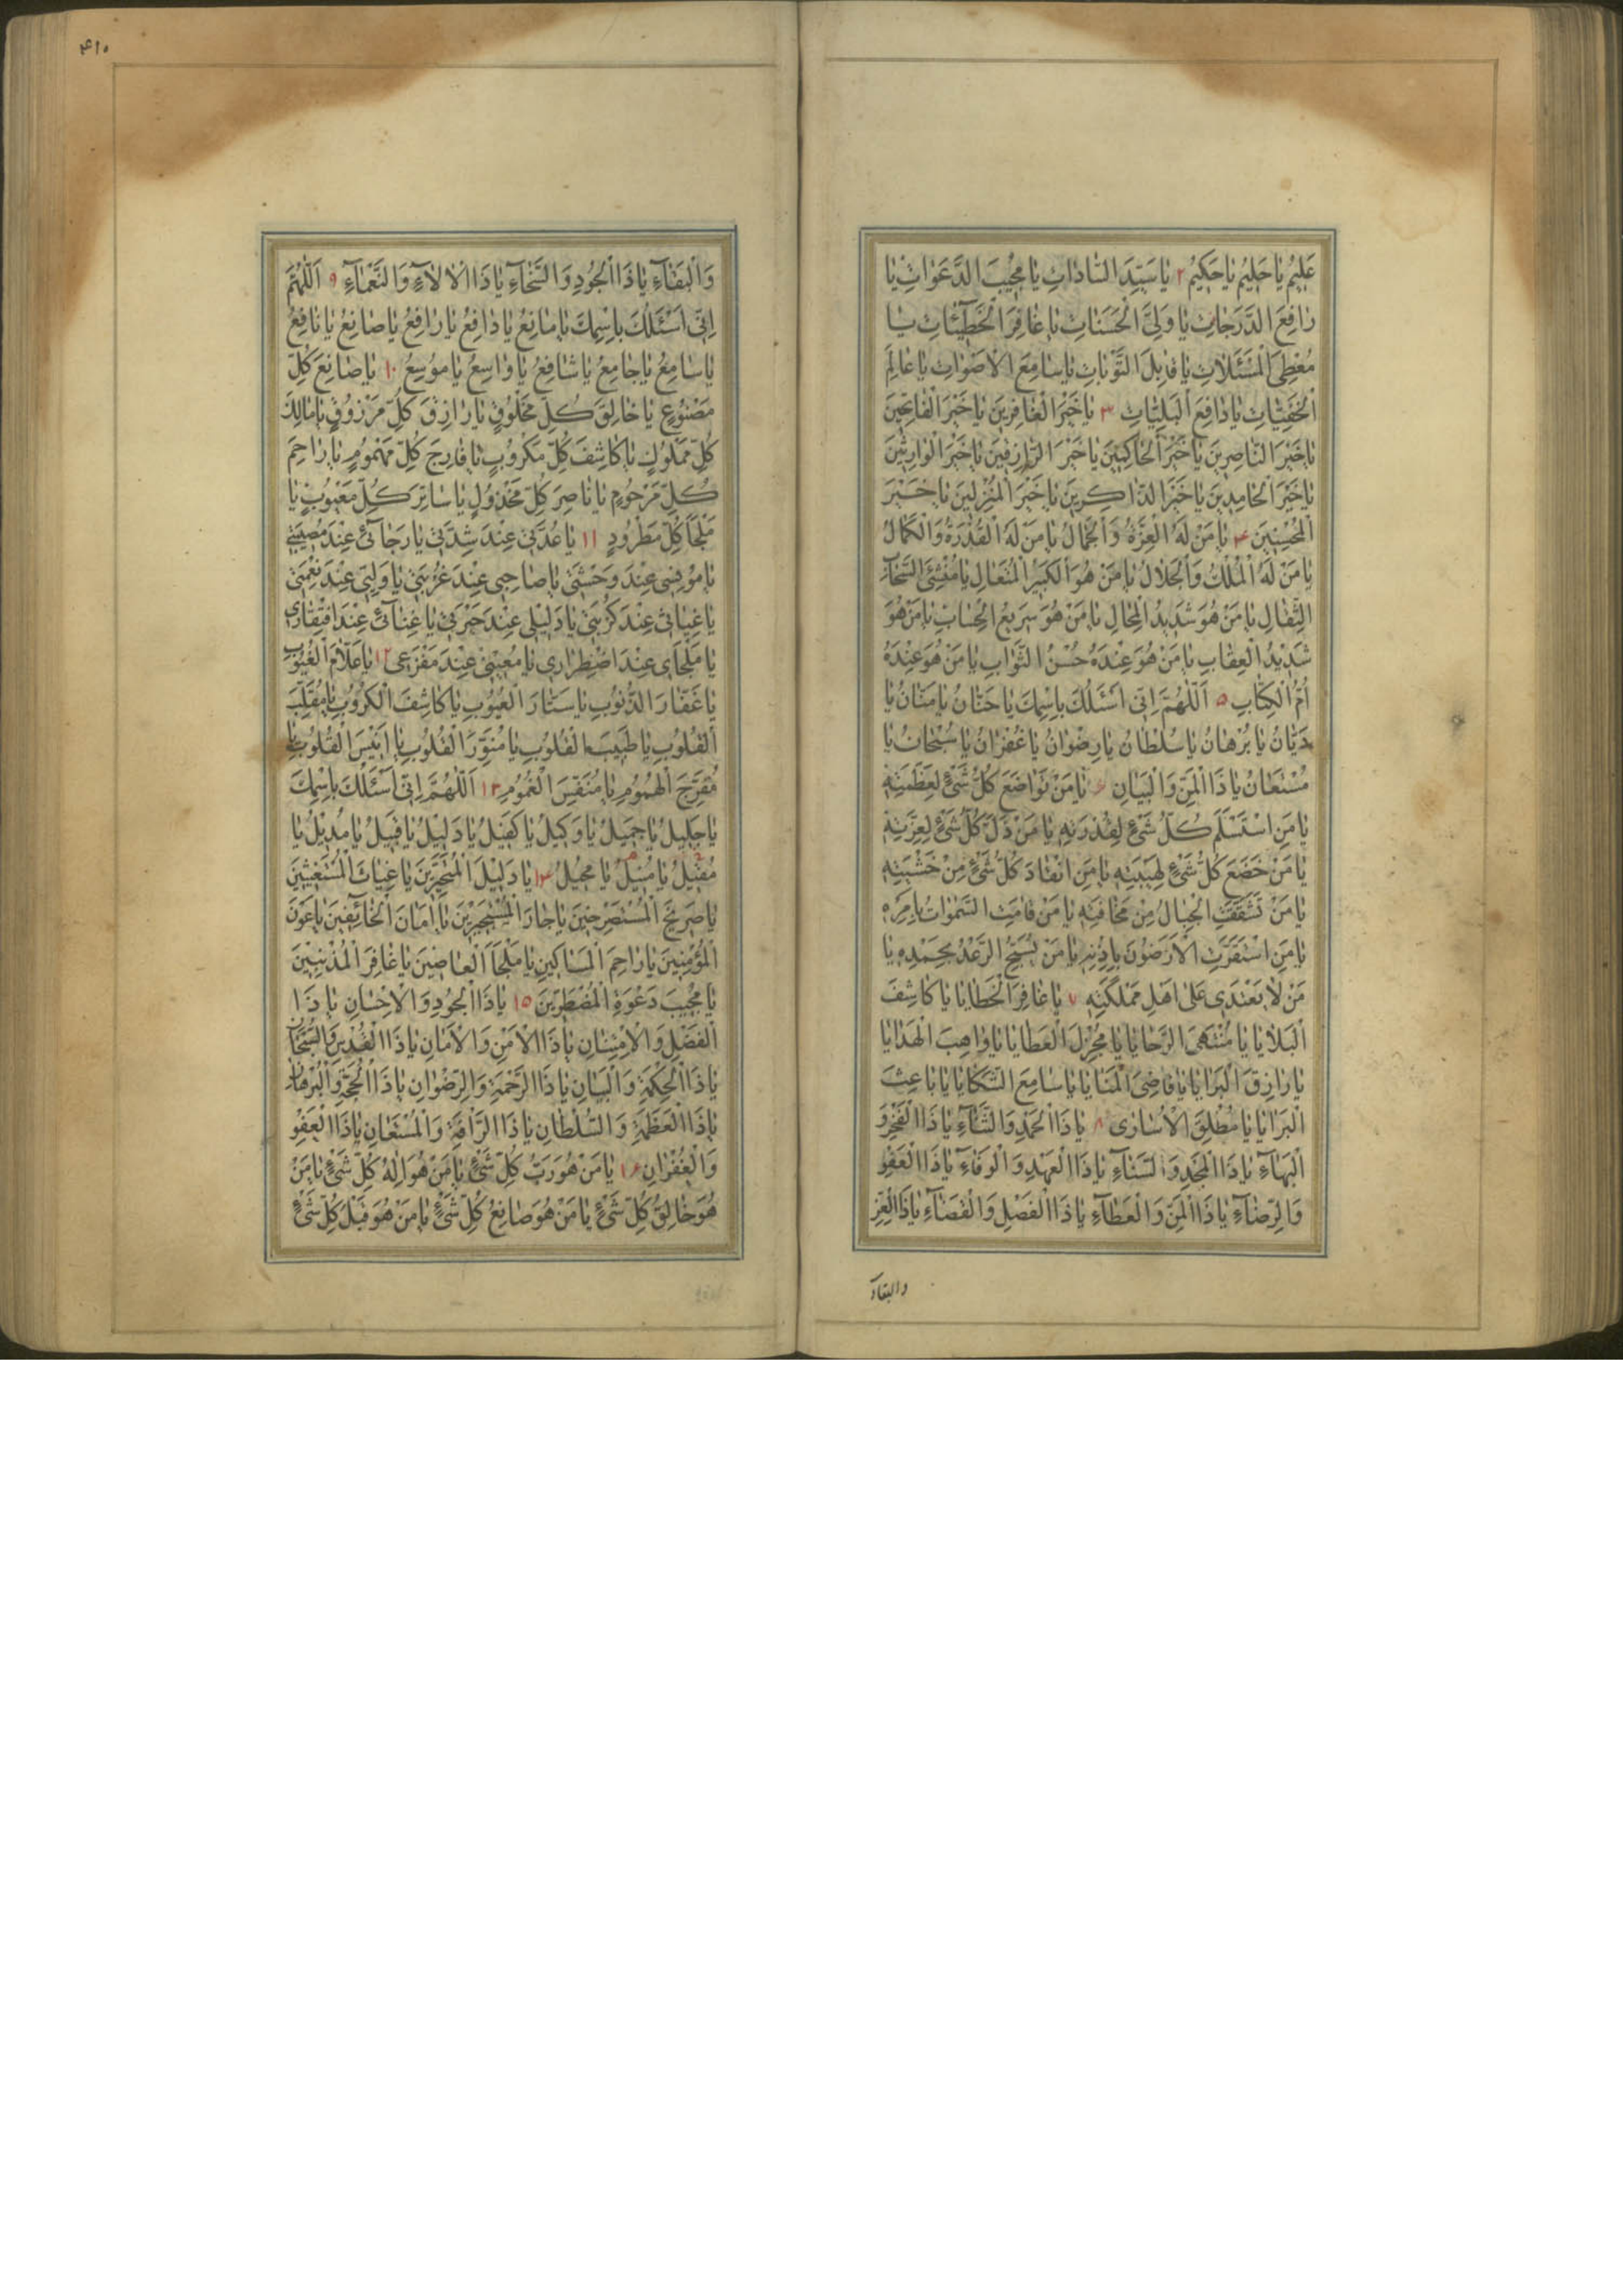 عَلِيمُ يَا حَلِيمُ يَا حَكِيمُ ۲ يَا سَيِّدَ السَّادَاتِ يَا مُجِيبَ الدَّعَوَاتِ يَا
رَافِعَ الدَّرَجَاتِ يَا وَلِيَّ الْحَسَنَاتِ يَا غَافِرَ الْخَطِيئَاتِ يَا
مُعْطِيَ الْمَسْئَلَاتِ يَا قَابِلَ التَّوْبَاتِ يَا سَامِعَ الْأَصْوَاتِ يَا عَالِمَ
الْخَفِيَّاتِ يَا دَافِعَ الْبَلِيَّاتِ ۳ يَا خَيْرَ الْغَافِرِينَ يَا خَيْرَ الْفَاتِحِينَ
يَا خَيْرَ النَّاصِرِينَ يَا خَيْرَ الْحَاكِمِينَ يَا خَيْرَ الرَّازِقِينَ يَا خَيْرَ الْوَارِثِينَ
يَا خَيْرَ الْحَامِدِينَ يَا خَيْرَ الذَّاكِرِينَ يَا خَيْرَ الْمُنْزِلِينَ يَا خَيْرَ
الْمُحْسِنِينَ ۴ يَا مَنْ لَهُ الْعِزَّةُ وَالْجَمَالُ يَا مَنْ لَهُ الْقُدْرَةُ وَالْكَمَالُ
يَا مَنْ لَهُ الْمُلْكُ وَالْجَلَالُ يَا مَنْ هُوَ الْكَبِيرُ الْمُتَعَالِ يَا مُنْشِئَ السَّحَابِ
الثِّقَالِ يَا مَنْ هُوَ شَدِيدُ الْمِحَالِ يَا مَنْ هُوَ سَرِيعُ الْحِسَابِ يَا مَنْ هُوَ
شَدِيدُ الْعِقَابِ يَا مَنْ هُوَ عِنْدَهُ حُسْنُ الثَّوَابِ يَا مَنْ هُوَ عِنْدَهُ
أُمُّ الْكِتَابِ ۵ اَللّٰهُمَّ اِنِّي اَسْئَلُكَ بِاسْمِكَ يَا حَنَّانُ يَا مَنَّانُ يَا
دَيَّانُ يَا بُرْهَانُ يَا سُلْطَانُ يَا رِضْوَانُ يَا غُفْرَانُ يَا سُبْحَانُ يَا
مُسْتَعَانُ يَا ذَا الْمَنِّ وَالْبَيَانِ ۶ يَا مَنْ تَوَاضَعَ كُلُّ شَيْءٍ لِعَظَمَتِهِ
يَا مَنِ اسْتَسْلَمَ كُلُّ شَيْءٍ لِقُدْرَتِهِ يَا مَنْ ذَلَّ كُلُّ شَيْءٍ لِعِزَّتِهِ
يَا مَنْ خَضَعَ كُلُّ شَيْءٍ لِهَيْبَتِهِ يَا مَنِ انْقَادَ كُلُّ شَيْءٍ مِنْ خَشْيَتِهِ
يَا مَنْ تَشَقَّقَتِ الْجِبَالُ مِنْ مَخَافَتِهِ يَا مَنْ قَامَتِ السَّمٰوَاتُ بِاَمْرِهِ
يَا مَنِ اسْتَقَرَّتِ الْأَرَضُونَ بِاِذْنِهِ يَا مَنْ يُسَبِّحُ الرَّعْدُ بِحَمْدِهِ يَا
مَنْ لَا يَعْتَدِي عَلَى اَهْلِ مَمْلَكَتِهِ ۷ يَا غَافِرَ الْخَطَايَا يَا كَاشِفَ
الْبَلَايَا يَا مُنْتَهَى الرَّجَايَا يَا مُجْزِلَ الْعَطَايَا يَا وَاهِبَ الْهَدَايَا
يَا رَازِقَ الْبَرَايَا يَا قَاضِيَ الْمَنَايَا يَا سَامِعَ الشَّكَايَا يَا بَاعِثَ
الْبَرَايَا يَا مُطْلِقَ الْأُسَارَى ۸ يَا ذَا الْحَمْدِ وَالثَّنَاءِ يَا ذَا الْفَخْرِ وَ
الْبَهَاءِ يَا ذَا الْمَجْدِ وَالسَّنَاءِ يَا ذَا الْعَهْدِ وَالْوَفَاءِ يَا ذَا الْعَفْوِ
وَالرِّضَاءِ يَا ذَا الْمَنِّ وَالْعَطَاءِ يَا ذَا الْفَصْلِ وَالْقَضَاءِ يَا ذَا الْعِزِّ
والبقاء
۴۱۰
وَالْبَقَاءِ يَا ذَا الْجُودِ وَالسَّخَاءِ يَا ذَا الْآلَاءِ وَالنَّعْمَاءِ ۹ اَللّٰهُمَّ
اِنِّي اَسْئَلُكَ بِاسْمِكَ يَا مَانِعُ يَا دَافِعُ يَا رَافِعُ يَا صَانِعُ يَا نَافِعُ
يَا سَامِعُ يَا جَامِعُ يَا شَافِعُ يَا وَاسِعُ يَا مُوسِعُ ۱۰ يَا صَانِعَ كُلِّ
مَصْنُوعٍ يَا خَالِقَ كُلِّ مَخْلُوقٍ يَا رَازِقَ كُلِّ مَرْزُوقٍ يَا مَالِكَ
كُلِّ مَمْلُوكٍ يَا كَاشِفَ كُلِّ مَكْرُوبٍ يَا فَارِجَ كُلِّ مَهْمُومٍ يَا رَاحِمَ
كُلِّ مَرْحُومٍ يَا نَاصِرَ كُلِّ مَخْذُولٍ يَا سَاتِرَ كُلِّ مَعْيُوبٍ يَا
مَلْجَأَ كُلِّ مَطْرُودٍ ۱۱ يَا عُدَّتِي عِنْدَ شِدَّتِي يَا رَجَائِي عِنْدَ مُصِيبَتِي
يَا مُونِسِي عِنْدَ وَحْشَتِي يَا صَاحِبِي عِنْدَ غُرْبَتِي يَا وَلِيِّي عِنْدَ نِعْمَتِي
يَا غِيَاثِي عِنْدَ كُرْبَتِي يَا دَلِيلِي عِنْدَ حَيْرَتِي يَا غِنَائِي عِنْدَ افْتِقَارِي
يَا مَلْجَاي عِنْدَ اضْطِرَارِي يَا مُعِينِي عِنْدَ مَفْزَعِي ۱۲ يَا عَلَّامَ الْغُيُوبِ
يَا غَفَّارَ الذُّنُوبِ يَا سَتَّارَ الْعُيُوبِ يَا كَاشِفَ الْكُرُوبِ يَا مُقَلِّبَ
الْقُلُوبِ يَا طَبِيبَ الْقُلُوبِ يَا مُنَوِّرَ الْقُلُوبِ يَا اَنِيسَ الْقُلُوبِ يَا
مُفَرِّجَ الْهُمُومِ يَا مُنَفِّسَ الْغُمُومِ ۱۳ اَللّٰهُمَّ اِنِّي اَسْئَلُكَ بِاسْمِكَ
يَا جَلِيلُ يَا جَمِيلُ يَا وَكِيلُ يَا كَفِيلُ يَا دَلِيلُ يَا قَبِيلُ يَا مُدِيلُ يَا
مُقِيلُ يَا مُنِيلُ يَا مُحِيلُ ۱۴ يَا دَلِيلَ الْمُتَحَيِّرِينَ يَا غِيَاثَ الْمُسْتَغِيثِينَ
يَا صَرِيخَ الْمُسْتَصْرِخِينَ يَا جَارَ الْمُسْتَجِيرِينَ يَا اَمَانَ الْخَائِفِينَ يَا عَوْنَ
الْمُؤْمِنِينَ يَا رَاحِمَ الْمَسَاكِينِ يَا مَلْجَأَ الْعَاصِينَ يَا غَافِرَ الْمُذْنِبِينَ
يَا مُجِيبَ دَعْوَةِ الْمُضْطَرِّينَ ۱۵ يَا ذَا الْجُودِ وَالْاِحْسَانِ يَا ذَا
الْفَضْلِ وَالْاِمْتِنَانِ يَا ذَا الْأَمْنِ وَالْأَمَانِ يَا ذَا الْقُدْسِ وَالسُّبْحَانِ
يَا ذَا الْحِكْمَةِ وَالْبَيَانِ يَا ذَا الرَّحْمَةِ وَالرِّضْوَانِ يَا ذَا الْحُجَّةِ وَالْبُرْهَانِ
يَا ذَا الْعَظَمَةِ وَالسُّلْطَانِ يَا ذَا الرَّأْفَةِ وَالْمُسْتَعَانِ يَا ذَا الْعَفْوِ
وَالْغُفْرَانِ ۱۶ يَا مَنْ هُوَ رَبُّ كُلِّ شَيْءٍ يَا مَنْ هُوَ اِلٰهُ كُلِّ شَيْءٍ يَا مَنْ
هُوَ خَالِقُ كُلِّ شَيْءٍ يَا مَنْ هُوَ صَانِعُ كُلِّ شَيْءٍ يَا مَنْ هُوَ قَبْلَ كُلِّ شَيْءٍ